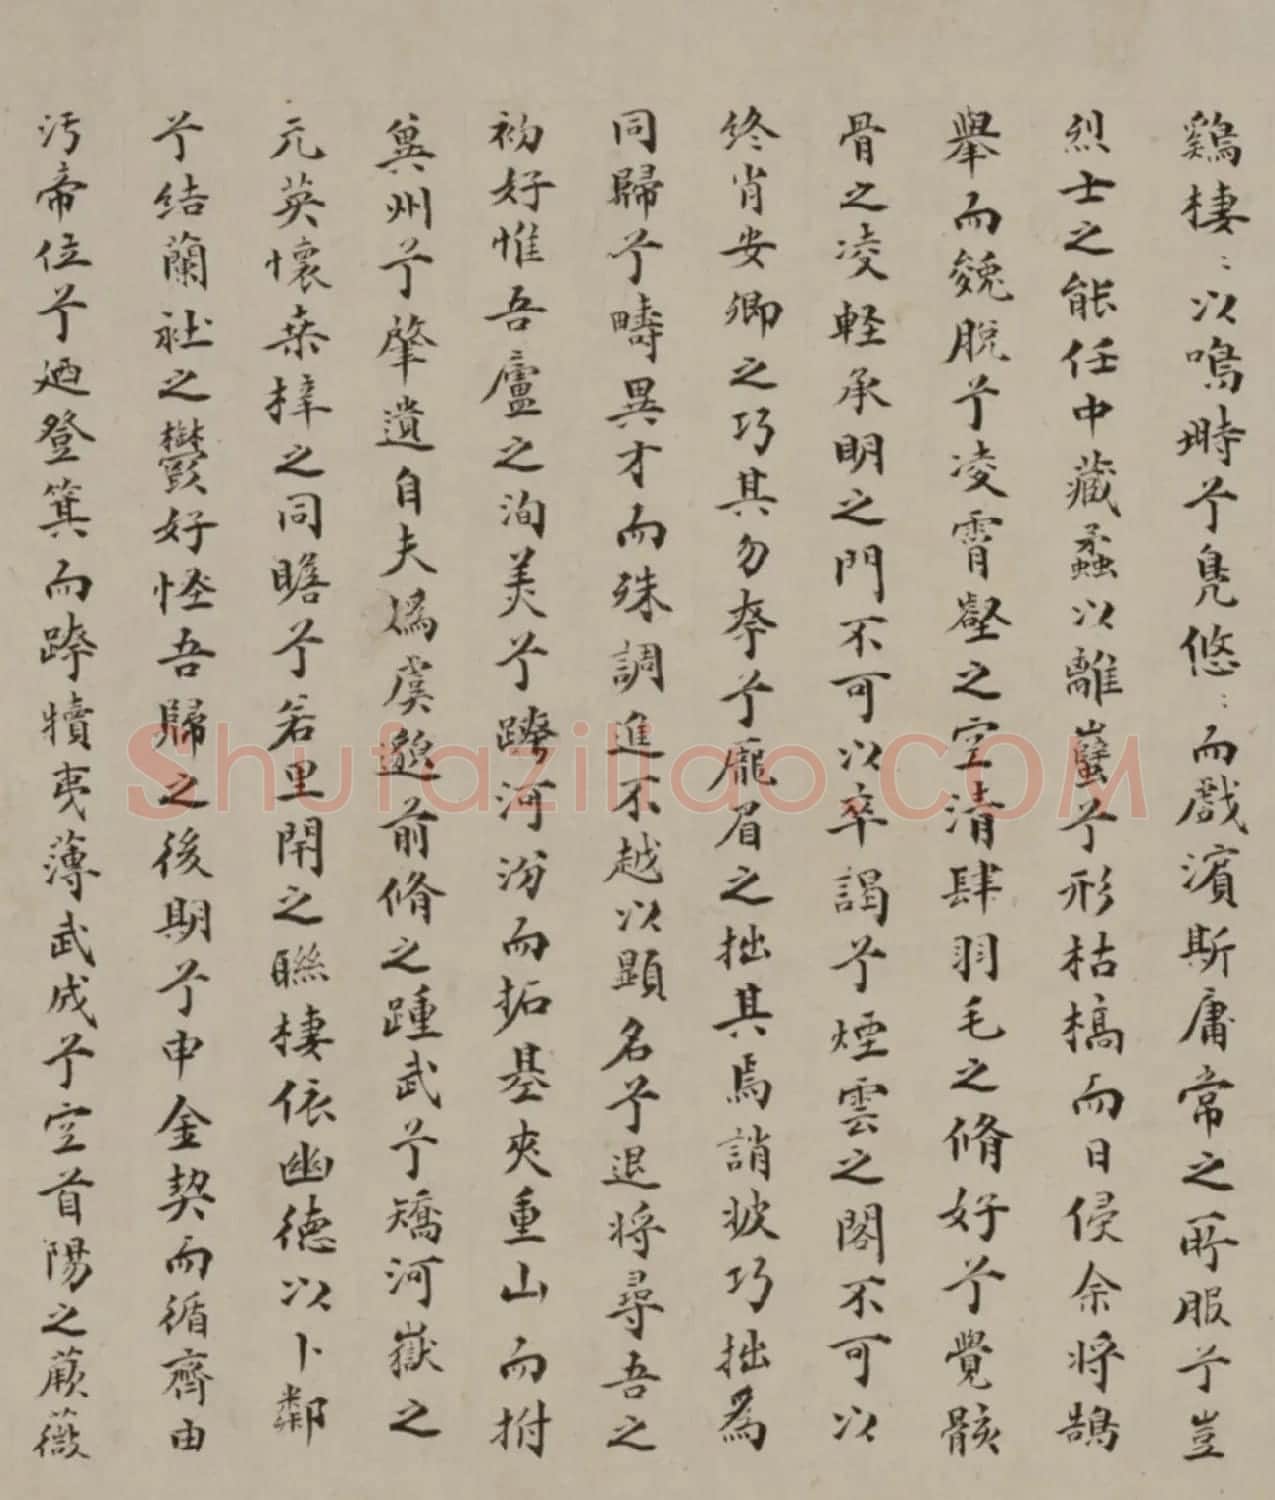 鷄棲〻以鳴塒兮鳧悠〻而戲濱斯庸常之所服兮豈
烈士之能任中藏蟊以離蠥兮形枯槁而日侵余將鵠
舉而兔脫兮凌霄壑之空清肆羽毛之脩好兮覺骸
骨之凌輕承明之門不可以卒謁兮煙雲之閣不可以
終肖安卿之巧其勿奉兮龐眉之拙其焉誚披巧拙為
同歸兮疇異才而殊調進不越以顯名兮退將尋吾之
初好惟吾廬之洵美兮躋河汾而拓基夾重山而拊
冀州兮肇遺自夫媯虞邈前脩之踵武兮矯河嶽之
元英懷桑梓之同瞻兮若里閈之聯棲依幽德以卜鄰
兮結蘭社之鬱好怪吾歸之後期兮申金契而循齊由
汚帝位兮廼登箕而跨犢夷薄武成兮空首陽之蕨薇
Shufaziliao.COM